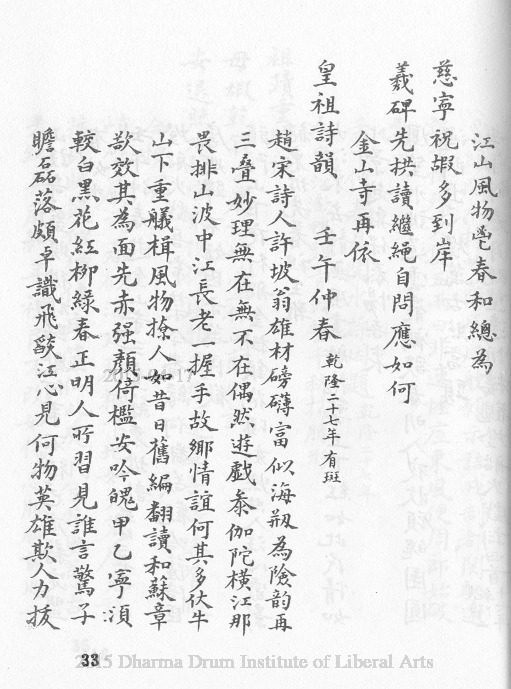 江山風物鬯春和總為
慈寧祝嘏多到岸
羲碑先拱讀繼繩自問應如何
金山寺再依
皇祖詩韻　壬午仲春 乾隆二十七年有斑
趙宋詩人許坡翁雄材磅礴富似海剏為險韵再
三疊妙理無在無不在偶然遊戲叅伽陀橫江那
畏排山波中江長老一握手故鄉情誼何其多伏牛
山下重艤楫風物撩人如昔日舊編翻讀和蘇章
欲效其為面先赤强顏倚檻安吟魄甲乙寧湏
較白黑花紅柳綠春正明人所習見誰言驚子
瞻磊落頗卓識飛燄江心見何物英雄欺人力拔
33
2015 Dharma Drum Institute of Liberal Arts